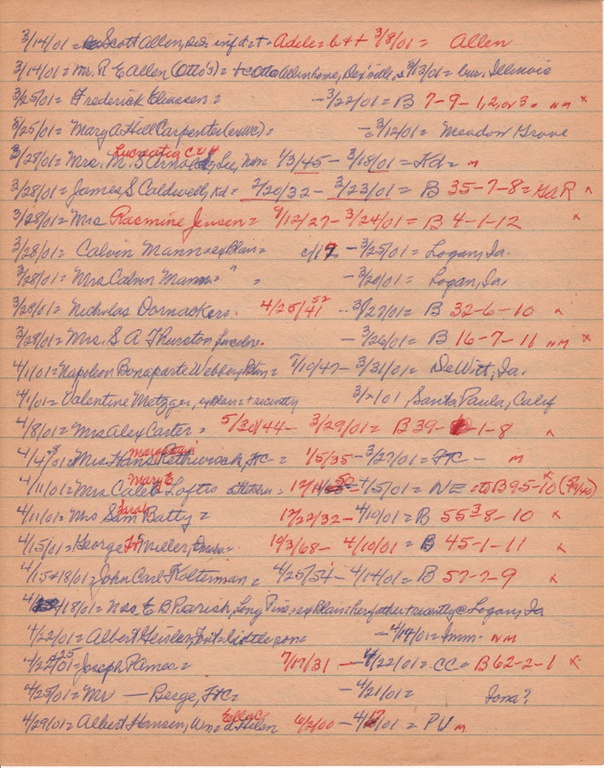 3/14/01 = Scott Allen, inf d + = Adele = b + + 3/8/01 = Allen
3/14/01 = Mr. R E Allen (Otto's) = Allen home, 3/13/01 = bur. Illinois
3/25/01 = Frederick Eliassen = - 3/22/01 = B 7-9-1,2, or 3. NM x
3/25/01 = Mary A Hill Carpenter = 3/12/01 = Meadow Grove
3/28/01 = Mrs. M. S Arnold, Lucretia 1/3/45 - 3/18/01 = Kd = M
3/28/01 = James S Caldwell, Kd = 2/20/32 - 3/23/01 = B 35-7-8 = GAR x
3/28/01 = Mrs Rasmine Jensen = 9/12/27 - 3/24/01 = B 4-1-12 x
3/28/01 = Calvin Mann = ex Plain = c/17 - 3/25/01 = Logan, Ia.
3/28/01 = Mrs Calvin Mann = " = - 3/20/01 = Logan, Ia.
3/28/01 = Nicholas Dornackers. 4/25/41 52 - 3/27/01 = B 32-6-10 x
3/28/01 = Mrs. S A Thurston - 3/26/01 = B 16-7-11 NM x
4/1/01 = Napoleon Bonaparte Webber, Plain = 7/10/47 - 3/31/01 = De Witt, Ia.
4/1/01 = Valentine Metzger, ex Plain + recently 3/ /01, Santa Paula, Calif
4/8/01 = Mrs Alex Carter = 5/30/44 - 3/29/01 = B 39- -1-8 x
Mrs Hans Rethwisch, HC = 1/5/35 - 3/27/01 = HC - M
4/11/01 = Mrs. Caleb Loftis Mary E - 4/5/01 = NE = to B 95-10
4/11/01 = Mrs Sam Batty = Sarah 12/22/32 - 4/10/01 = B 55-8-10 x
4/15/01 = George Miller, 10/3/68 - 4/10/01 = B 45-1-11 x
4/15 + 18/01 = John Carl Kolterman = 4/25/54 - 4/14/01 = B 57-7-9 x
4/18/01 = Mrs. E B Parish, Long Pine, ex Plain = her father + recently @ Logan, Ia
4/22/01 = Albert Heisler, little son = - 4/14/01 = Imm. NM
4/22 + 25/01 = Joseph Pamea = 7/17/31 - 4/22/01 = CC = B 62-2-1 x
4/25/01 = Mr — Berge, HC = - 4/21/01 = Iona?
4/29/01 = Albert Hansen, Wm = d Helen 6/2/00 - 4/ /01 = PV M